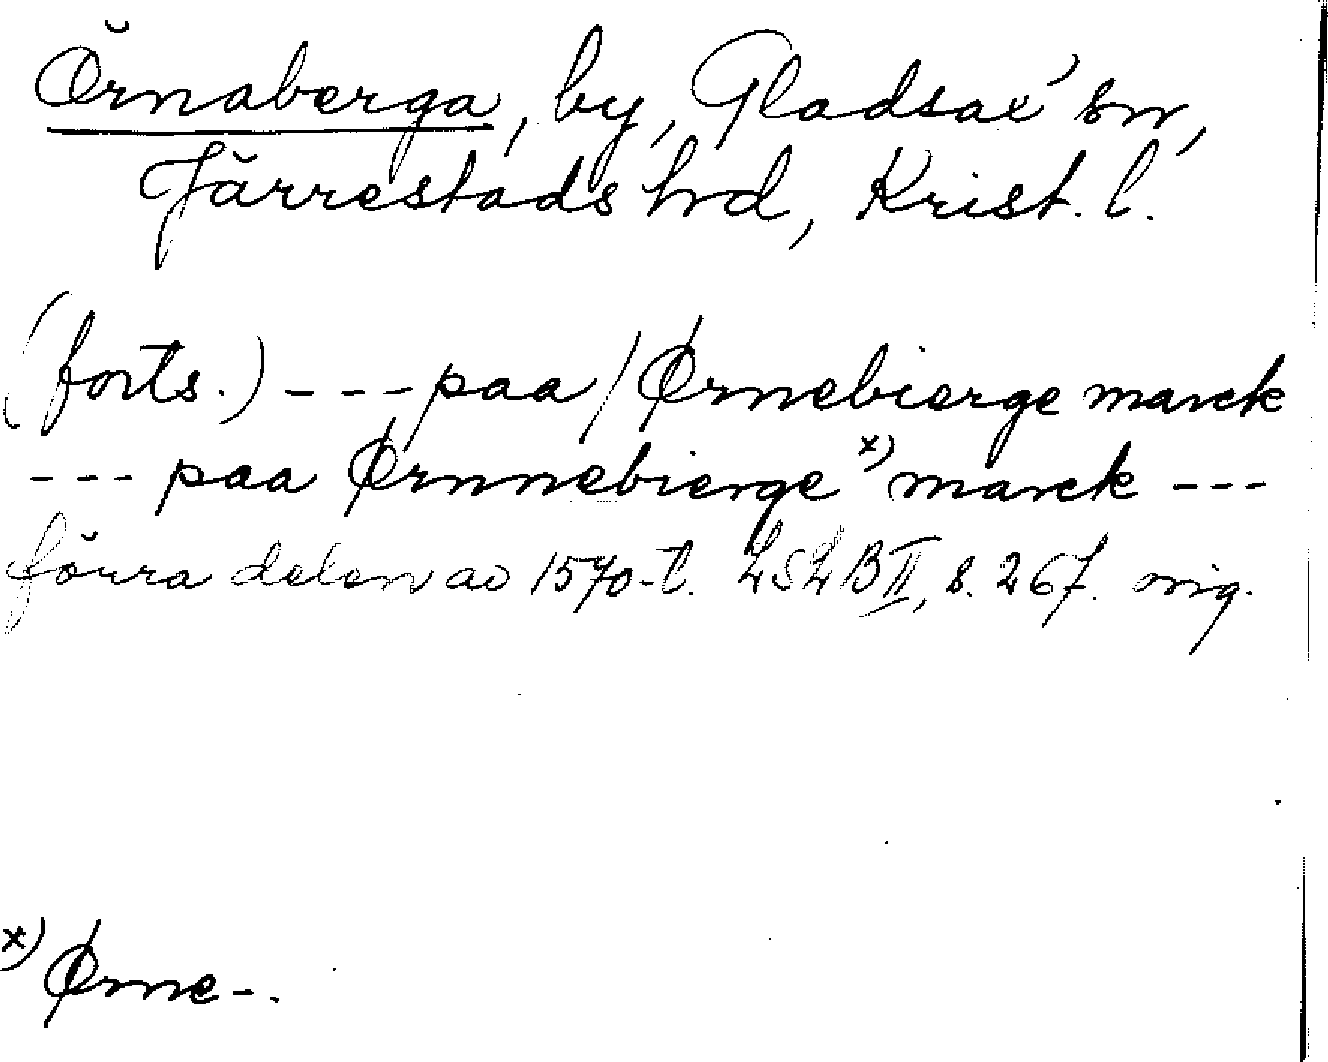 Örnaberga, by, Gladsax' sn,
Järrestads hrd, Krist. l.
(forts.) --- paa / Ørnebierge marck
--- paa Ørnnebierge x) marck ---
förra delen av 1570-t. LSLB II, s. 267. orig.
x) Ørne-.